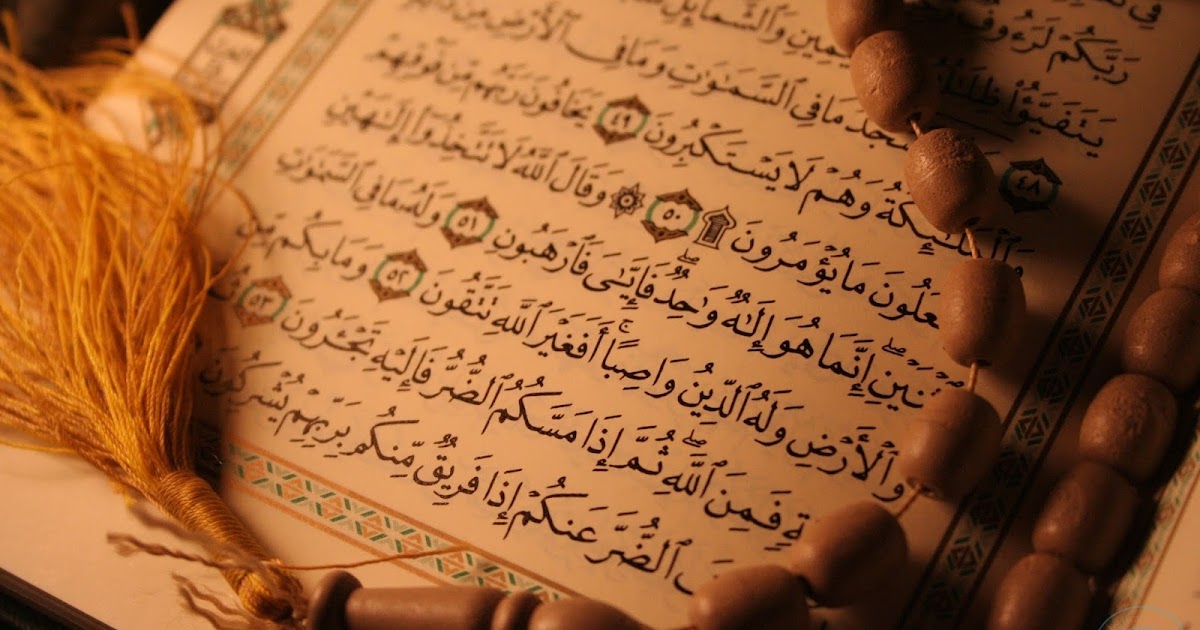 فِي
رَبَّكُمْ
يَتَفَيَّؤُا۟ وَٱلشَّمَآئِلِ
٤٨ مَا فِى ٱلسَّمَٰوَٰتِ وَمَا فِى ٱلْأَرْضِ مِن
وَٱلْمَلَٰٓئِكَةُ وَهُمْ لَا يَسْتَكْبِرُونَ ٤٩ يَخَافُونَ رَبَّهُم مِّن فَوْقِهِمْ
مَا يُؤْمَرُونَ ۩ ٥٠ ۞ وَقَالَ ٱللَّهُ لَا تَتَّخِذُوٓا۟ إِلَٰهَيْنِ
ٱثْنَيْنِ ۖ إِنَّمَا هُوَ إِلَٰهٌ وَٰحِدٌ ۖ فَإِيَّٰىَ فَٱرْهَبُونِ ٥١ وَلَهُۥ مَا فِى ٱلسَّمَٰوَٰتِ
وَٱلْأَرْضِ وَلَهُ ٱلدِّينُ وَاصِبًا ۚ أَفَغَيْرَ ٱللَّهِ تَتَّقُونَ ٥٢ وَمَا بِكُم مِّن
فَمِنَ ٱللَّهِ ۖ ثُمَّ إِذَا مَسَّكُمُ ٱلضُّرُّ فَإِلَيْهِ تَجْـَٔرُونَ ٥٣
ٱلضُّرَّ عَنكُمْ إِذَا فَرِيقٌ مِّنكُم بِرَبِّهِمْ يُشْرِكُونَ